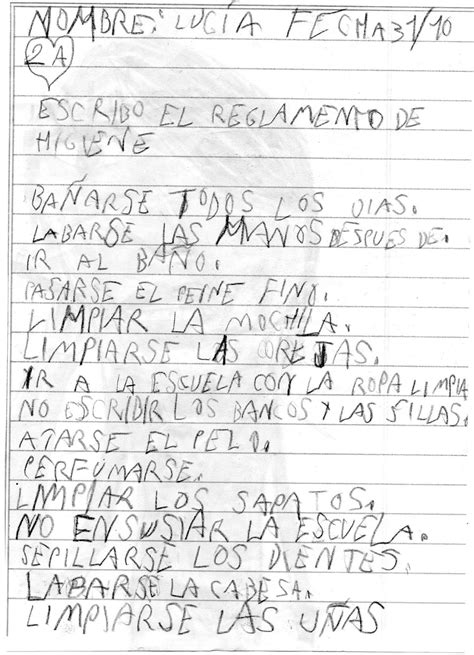 NOMBRE: LUCÍA FECHA 31/10
2 A
ESCRIBO EL REGLAMENTO DE
HIGIENE
BAÑARSE TODOS LOS DIAS.
LABARSE LAS MANOS DESPUES DE.
IR AL BAÑO.
PASARSE EL PEINE FINO.
LIMPIAR LA MOCHILA.
LIMPIARSE LAS OREJAS.
IR A LA ESCUELA CON LA ROPA LIMPIA
NO ESCRIDIR LOS BANCOS Y LAS SILLAS.
ATARSE EL PELO.
PERFUMARSE.
LIMPIAR LOS SAPATOS.
NO ENSUSIAR LA ESCUELA.
SEPILLARSE LOS DIENTES.
LABARSE LA CABESA.
LIMPIARSE LAS UÑAS